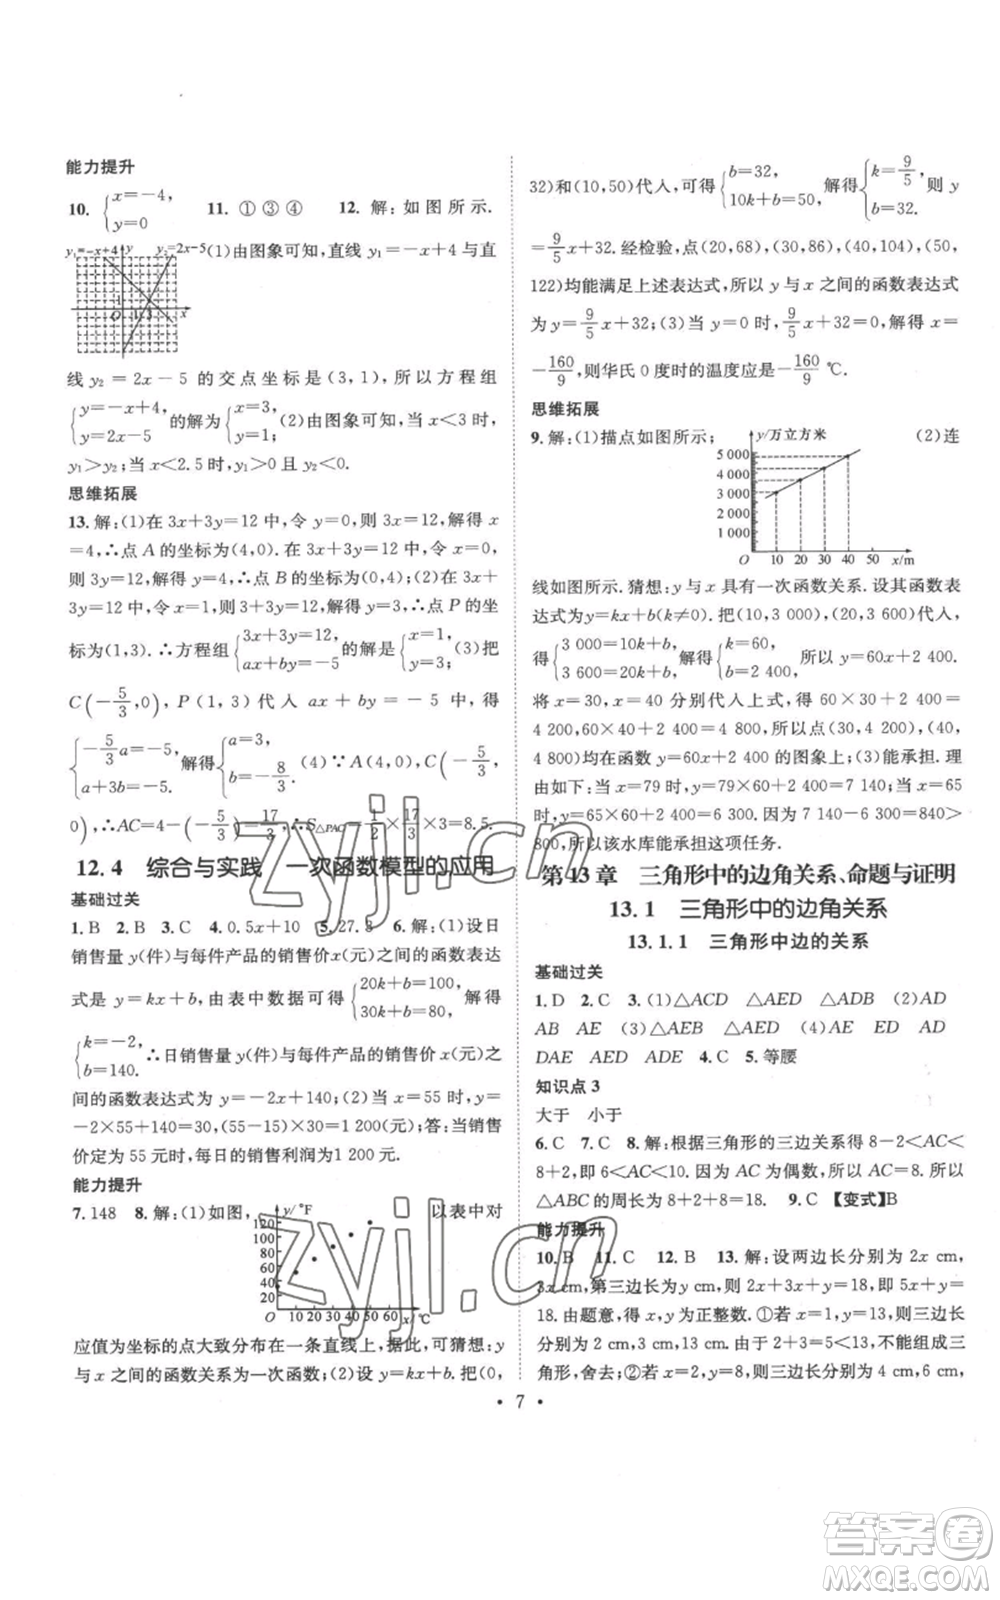 能力提升
10. {x=-4, y=0  11. ①③④  12. 解:如图所示.
y₁=-x+4 y₂=2x-5 (1)由图象可知,直线 y₁=-x+4 与直
1 O 1 3 x
线 y₂=2x-5 的交点坐标是(3,1),所以方程组
{y=-x+4, y=2x-5 的解为 {x=3, y=1; (2)由图象可知,当 x<3 时,
y₁>y₂;当 x<2.5 时,y₁>0 且 y₂<0.
思维拓展
13.解:(1)在 3x+3y=12 中,令 y=0,则 3x=12,解得 x
=4,∴点 A 的坐标为(4,0).在 3x+3y=12 中,令 x=0,
则 3y=12,解得 y=4,∴点 B 的坐标为(0,4);(2)在 3x+
3y=12 中,令 x=1,则 3+3y=12,解得 y=3,∴点 P 的坐
标为(1,3).∴方程组 {3x+3y=12, ax+by=-5 的解是 {x=1, y=3; (3)把
C(-5/3,0),P(1,3)代入 ax+by=-5 中,得
{-5/3a=-5, a+3b=-5. 解得 {a=3, b=-8/3. (4)∵A(4,0),C(-5/3,
0),∴AC=4-(-5/3)=17/3,∴S△PAC=1/2×17/3×3=8.5.
12.4 综合与实践 一次函数模型的应用
基础过关
1.B 2.B 3.C 4.0.5x+10 5.27.8 6.解:(1)设日
销售量 y(件)与每件产品的销售价 x(元)之间的函数表达
式是 y=kx+b,由表中数据可得 {20k+b=100, 30k+b=80, 解得
{k=-2, b=140. ∴日销售量 y(件)与每件产品的销售价 x(元)之
间的函数表达式为 y=-2x+140;(2)当 x=55 时,y=
-2×55+140=30,(55-15)×30=1 200(元);答:当销售
价定为 55 元时,每日的销售利润为1 200 元.
能力提升
7.148 8.解:(1)如图, 以表中对
y/°F 120 100 80 60 40 20 O 10 20 30 40 50 60 x/℃
应值为坐标的点大致分布在一条直线上,据此,可猜想:y
与 x 之间的函数关系为一次函数;(2)设 y=kx+b,把(0,
32)和(10,50)代入,可得 {b=32, 10k+b=50, 解得 {k=9/5, b=32. 则 y
=9/5x+32.经检验,点(20,68),(30,86),(40,104),(50,
122)均能满足上述表达式,所以y与x之间的函数表达式
为 y=9/5x+32;(3)当 y=0 时,9/5x+32=0,解得 x=
-160/9,则华氏 0 度时的温度应是-160/9 ℃.
思维拓展
9.解:(1)描点如图所示; (2)连
y/万立方米 5 000 4 000 3 000 2 000 1 000 O 10 20 30 40 50 x/m
线如图所示.猜想:y与 x 具有一次函数关系.设其函数表
达式为y=kx+b(k≠0).把(10,3 000),(20,3 600)代入,
得 {3 000=10k+b, 3 600=20k+b, 解得 {k=60, b=2 400, 所以 y=60x+2 400.
将 x=30,x=40 分别代入上式,得 60×30+2 400=
4 200,60×40+2 400=4 800,所以点(30,4 200),(40,
4 800)均在函数 y=60x+2 400 的图象上;(3)能承担.理
由如下:当 x=79 时,y=79×60+2 400=7 140,当 x=65
时,y=65×60+2 400=6 300.因为 7 140-6 300=840>
800,所以该水库能承担这项任务.
第 13 章 三角形中的边角关系、命题与证明
13.1 三角形中的边角关系
13.1.1 三角形中边的关系
基础过关
1.D 2.C 3.(1)△ACD △AED △ADB (2)AD
AB AE (3)△AEB △AED (4)AE ED AD
DAE AED ADE 4.C 5.等腰
知识点 3
大于 小于
6.C 7.C 8.解:根据三角形的三边关系得 8-2<AC<
8+2,即 6<AC<10.因为 AC 为偶数,所以 AC=8.所以
△ABC 的周长为 8+2+8=18. 9.C 【变式】B
能力提升
10.B 11.C 12.B 13.解:设两边长分别为 2x cm,
3x cm,第三边长为 y cm,则 2x+3x+y=18,即 5x+y=
18,由题意,得 x,y 为正整数.①若 x=1,则三角形三边长
分别为 2 cm,3 cm,13 cm.由于 2+3=5<13,不能组成三
角形,舍去;②若x=2,则三角形三边长分别为 4 cm,6 cm,
• 7 •
zyjl.cn
zyjl.cn
答案卷
MXQE.COM